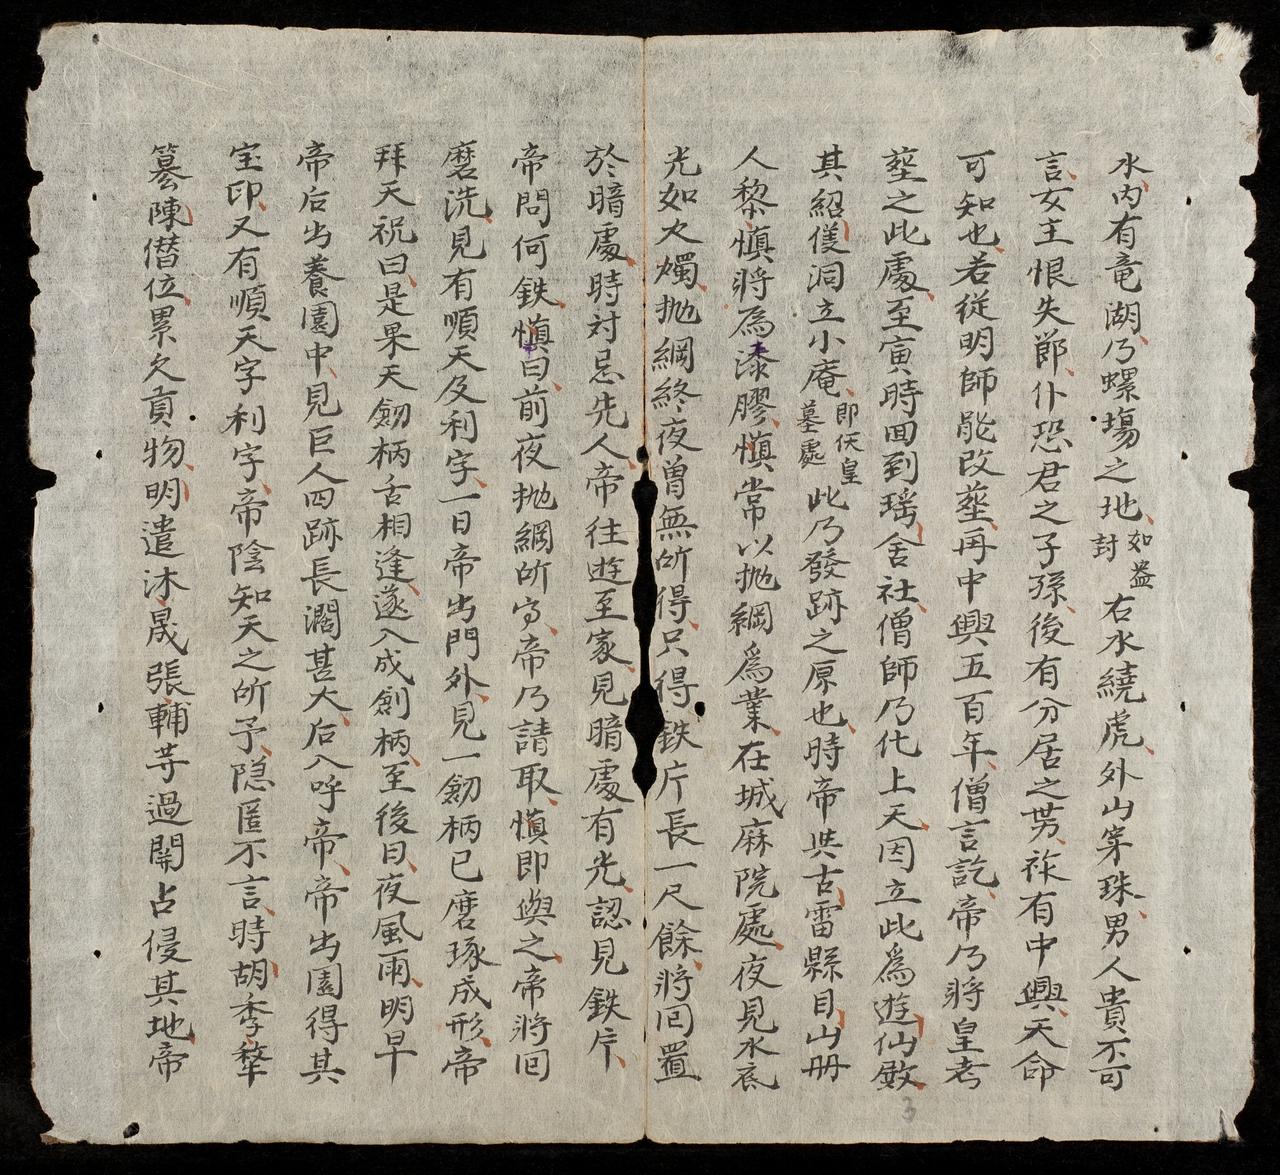 水内有竜湖乃螺塲之地如盎封右水繞虎外山穿珠男人貴不可
言女主恨失節仆恐君之子孫後有分居之势祚有中興天命
可知也若従明師能改塟再中興五百年僧言訖帝乃將皇考
塟之此處至寅時回到瑶舍社僧師乃化上天因立此爲遊仙殿
其紹僊洞立小庵即仸皇墓處此乃發跡之原也時帝共古雷縣目山册
人黎慎將為漆膠慎常以抛綱爲業在城麻院處夜見水底
光如火燭抛綱終夜曽無所得只得鉄片長一尺餘將回置
於暗處時対忌先人帝往遊至家見暗處有光認見鉄片
帝問何鉄慎曰前夜抛綱所得帝乃請取慎即與之帝將回
磨洗見有順天及利字一日帝出門外見一劒柄已磨琢成形帝
拜天祝曰是果天劒柄舌相逢遂入成劒柄至後日夜風雨明早
帝后出養園中見巨人四跡長濶甚大后入呼帝帝出園得其
宝印又有順天字利字帝陰知天之所予隠匿不言時胡季犛
簒陳僣位累欠貢物明遣沐晟張輔等過開占侵其地帝